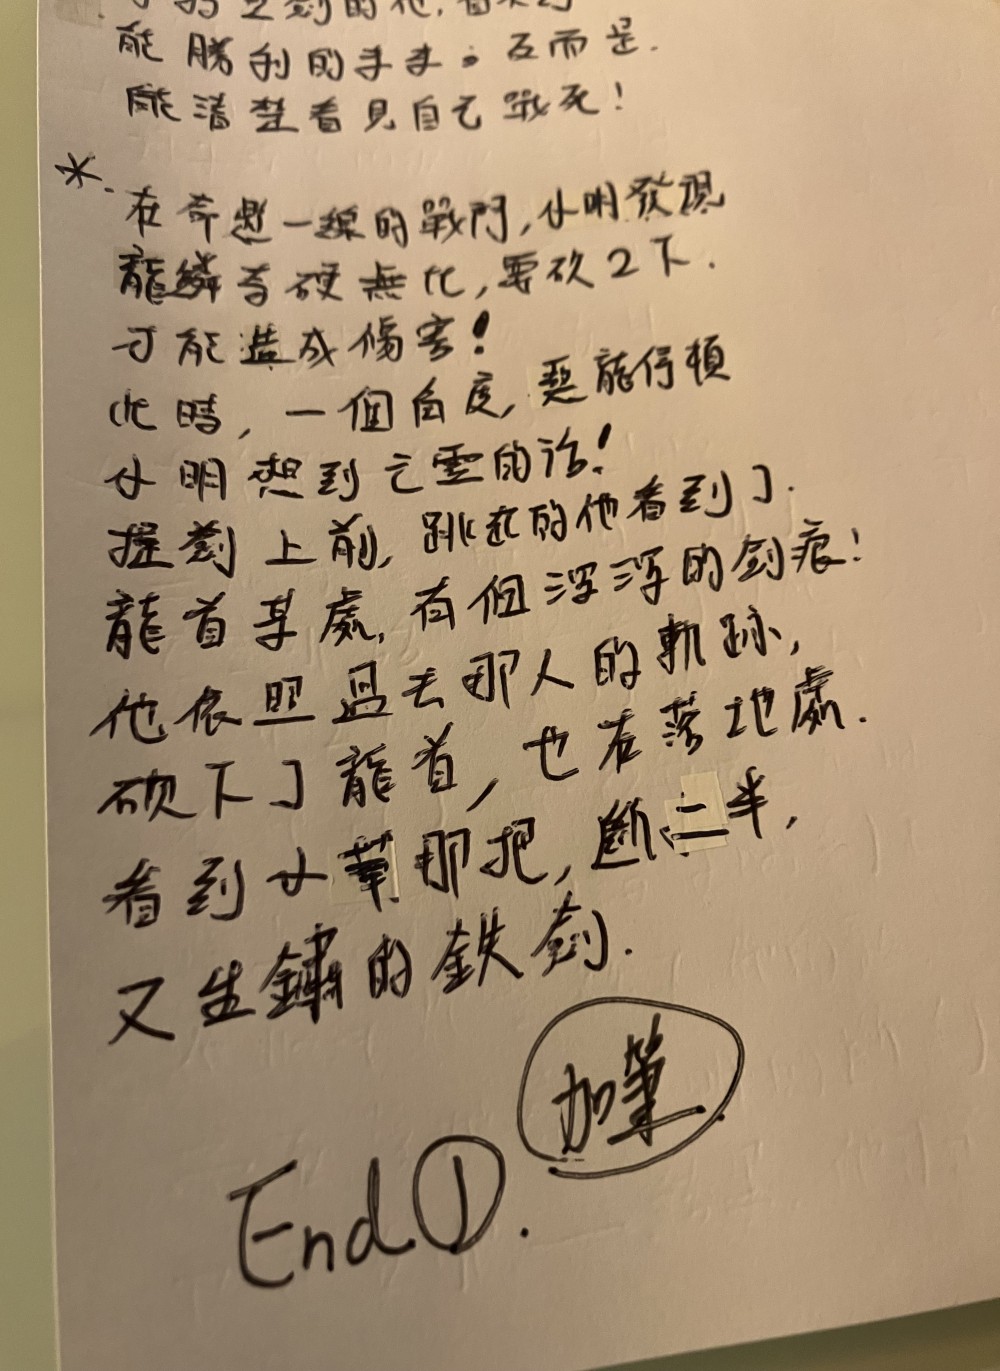 的他，
能勝利的未來。反而是.
能清楚看見自己戰死！
*. 在奇悲一線的戰鬥，小明發現
龍鱗奇硬無比，要砍2下.
才能造成傷害！
此時，一個角度，惡龍停頓
小明想到亡靈的話！
提劍上前，跳起的他看到了.
龍首某處，有個深深的劍痕！
他依照過去那人的軌跡，
砍下了龍首，也在落地處.
看到小華那把，斷二半，
又生鏽的鉄劍.
加筆
End①.